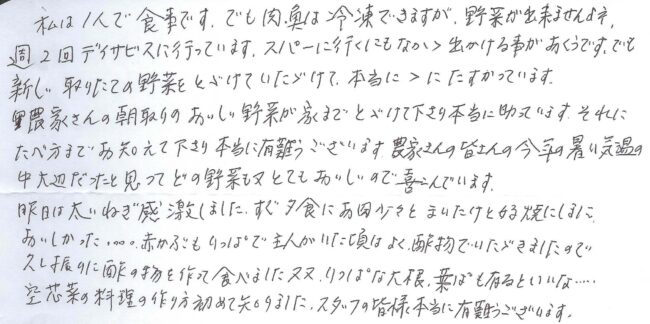 私は1人で食事です。でも肉魚は冷凍できますが、野菜が出来ませんよネ、
週2回デイサービスに行っています。スパーに行くにもなか〻出かける事があくうです。でも
新しい取りたての野菜をとゞけていたゞけて、本当に〻にたすかっています。
農家さんの朝取りのおいしい野菜が家までとゞけて下さり本当に助えています。それに
たべ方までお知えて下さり本当に有難うございます。農家さんの皆さんの今年の暑い気温の
中大辺だったと思ってどの野菜も又とてもおいしいので喜んでいます。
昨日は太いねぎ感激しました。すぐ夕食にお肉少々とまいたけと好焼にしました
おいしかった……。赤かぶもりっぱで主人がいた頃はよく酢物でいたゞきましたので
久し振りに酢の物を作って食べました。又又、りっぱな大根、葉ぱも有るといいな……
空芯菜の料理の作り方初めて知りました。スタッフの皆様本当に有難うございます。